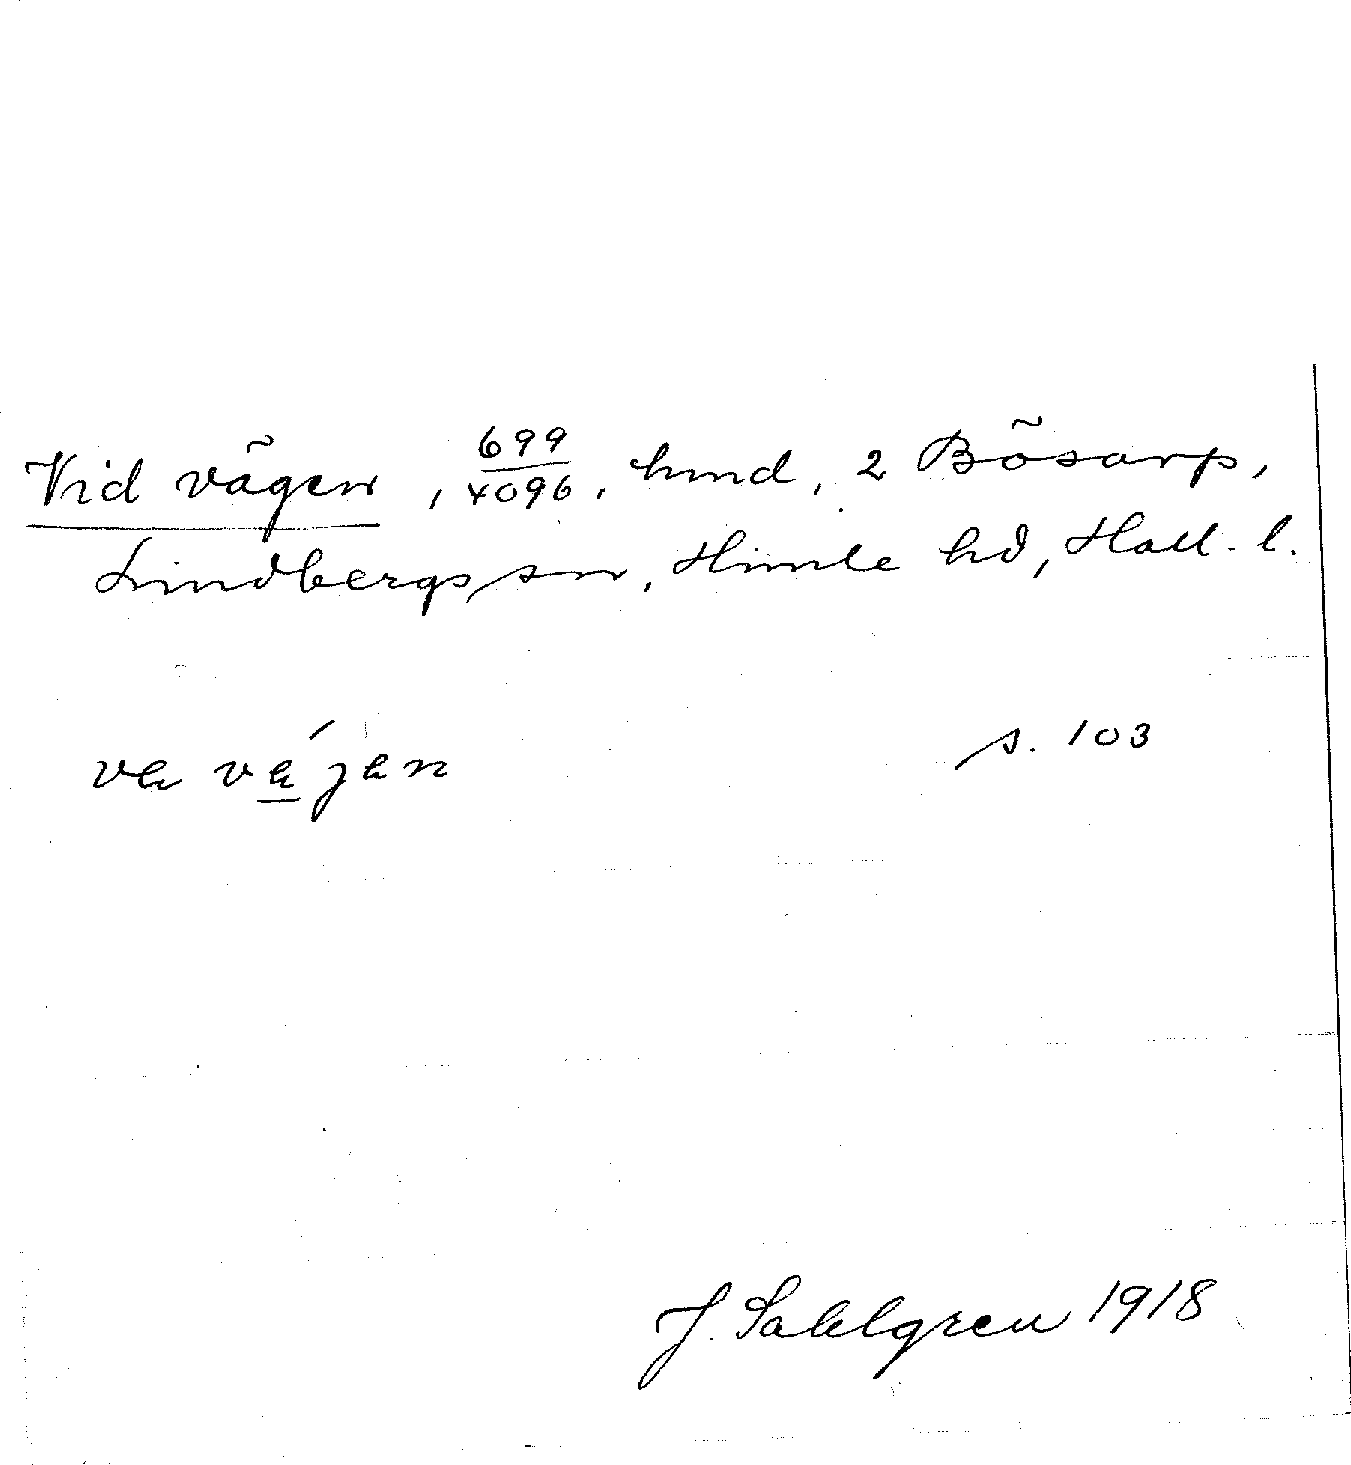 Vid vägen, 699/4096, hmd, 2 Bösarp,
Lindbergs sn, Himle hd, Hall. l.
va vájan s. 103
J. Sahlgren 1918